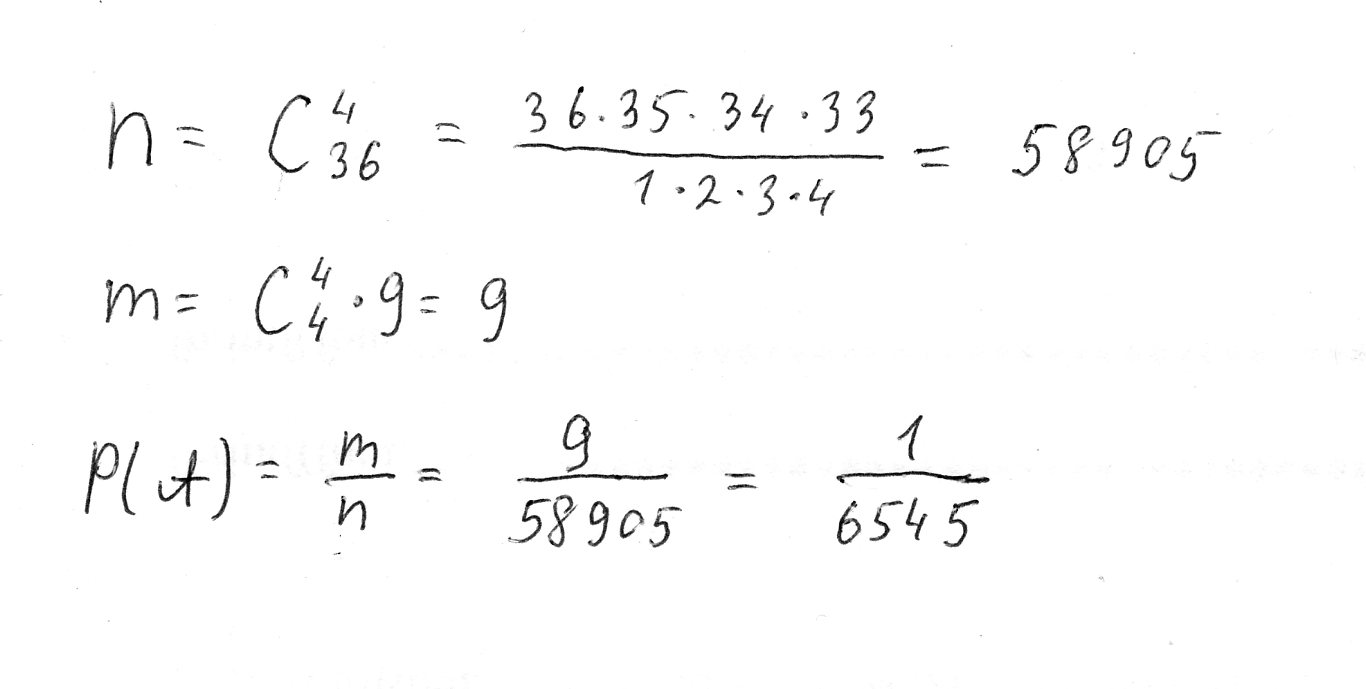 n = C₃₆⁴ = (36·35·34·33)/(1·2·3·4) = 58905
m = C₄⁴·9 = 9
P(A) = m/n = 9/58905 = 1/6545